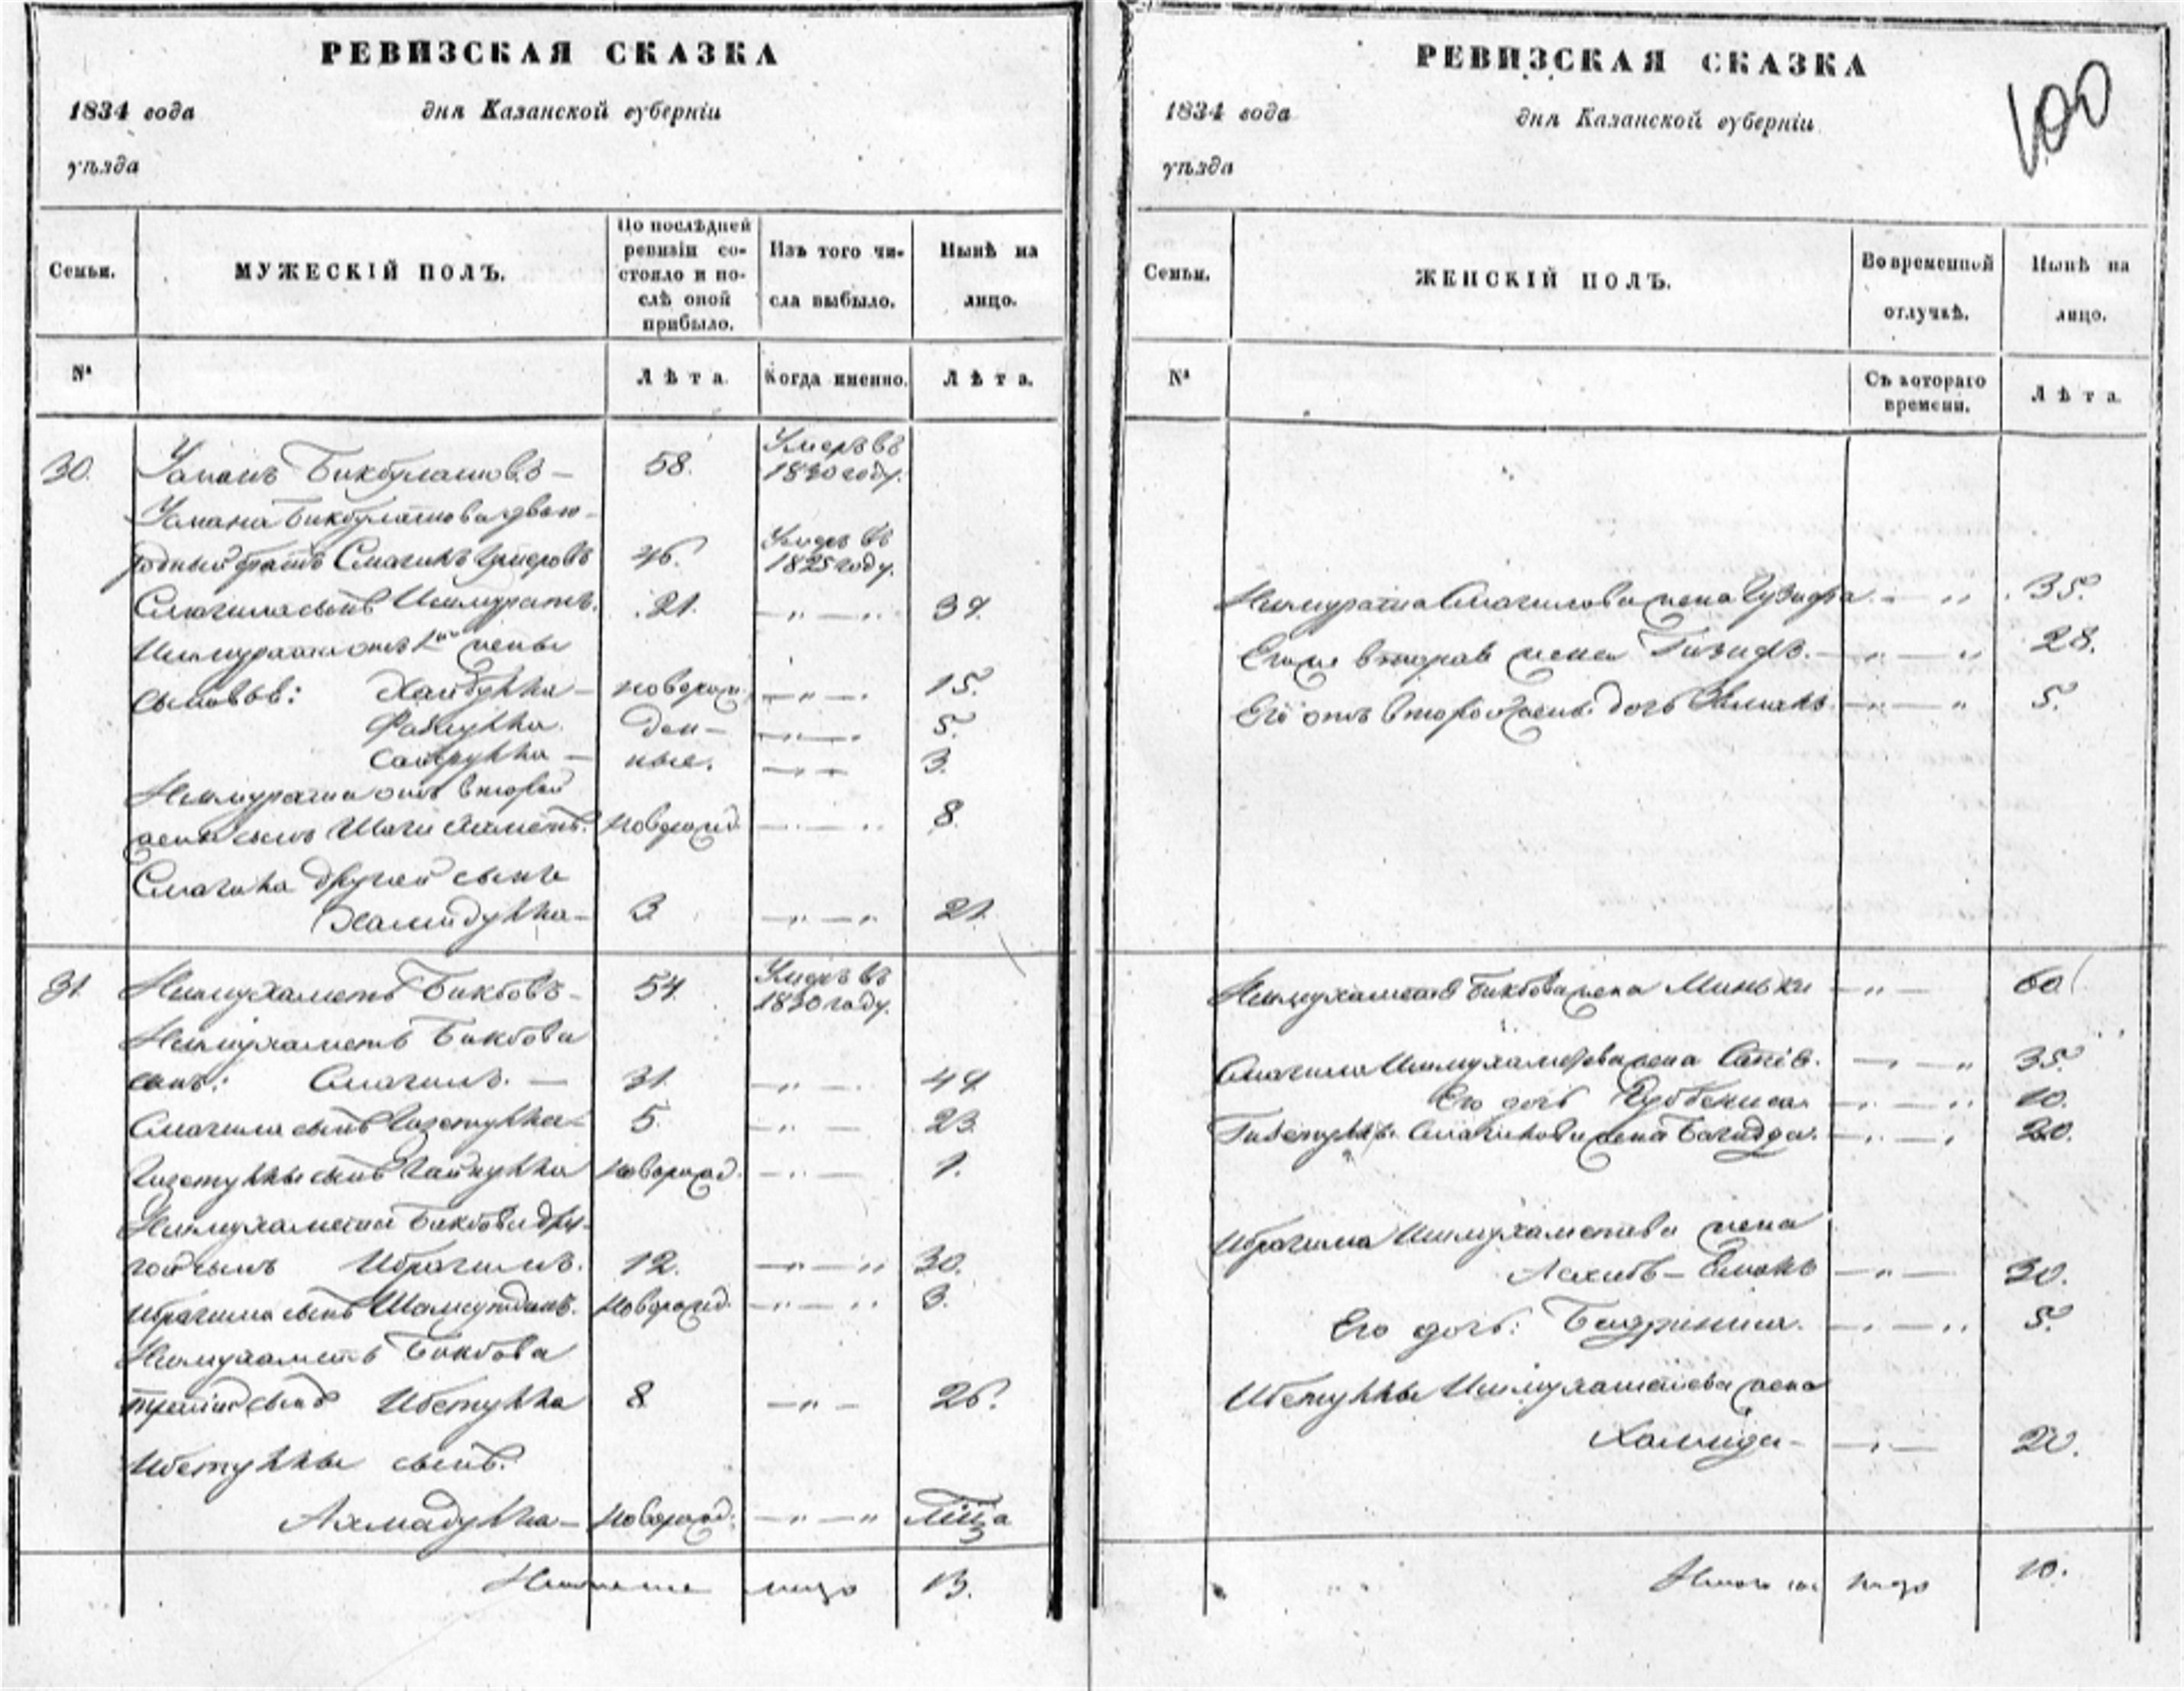 РЕВИЗСКАЯ СКАЗКА
1834 года дня Казанской губерніи
уѣзда
Семьи. МУЖЕСКІЙ ПОЛЪ. По послѣдней ревизіи состояло и послѣ оной прибыло. Изъ того числа выбыло. Нынѣ на лицо.
№ Лѣта. Когда именно. Лѣта.
30. Усманъ Бикбулатовъ — 58. Умеръ въ 1830 году.
Усмана Бикбулатова двою-
родный братъ Смагилъ 46. Умеръ въ 1825 году.
Смагила сынъ Ишмуратъ. 21. — „ — „ 39.
Ишмурата отъ 1ой жены
сыновья: Хайбулла — новорож — „ — 15.
Файзулла ден- — „ — 5.
Сайфулла — ные. — „ — 3.
Ишмурата отъ второй
жены сынъ Шаги Ахметъ. новорожд. — „ — „ 8.
Смагила другой сынъ
Хамидулла — 3. — „ — „ 21.
31. Ишмухаметъ Бикбовъ — 54. Умеръ въ 1830 году.
Ишмухаметъ Бикбова
сынъ: Смагилъ. — 31. — „ — 49.
Смагила сынъ Гизетулла 5. — „ — 23.
Гизетуллы сынъ новорожд. — „ — 1.
Ишмухаметя Бикбова дру-
гой сынъ Ибрагимъ. 12. — „ — „ 30.
Ибрагима сынъ новорожд. — „ — „ 3.
Ишмухаметъ Бикбова
третій сынъ Ибетулла 8. — „ — 26.
Ибетуллы сынъ.
Ахмадулла — новорожд. — „ — „
Итого на лицо 13.
РЕВИЗСКАЯ СКАЗКА
100
1834 года дня Казанской губерніи
уѣзда
Семьи. ЖЕНСКІЙ ПОЛЪ. Во временной отлучкѣ. Нынѣ на лицо.
№ Съ котораго времени. Лѣта.
Ишмурата Смагилова жена — „ 35.
Его же вторая жена — „ — „ 28.
Его отъ второй жены дочь — „ — „ 5.
Ишмухаметя Бикбова жена Миньки — „ — 60.
Смагила Ишмухаметева жена — „ — „ 35.
Его дочь — „ — „ 10.
Гизетуллы Смагилова жена Багидда. — „ — „ 20.
Ибрагима Ишмухаметева жена
— „ — 30.
Его дочь: — „ — „ 5.
Ибетуллы Ишмухаметева жена
Хамида — — „ — 20.
Итого на лицо 10.